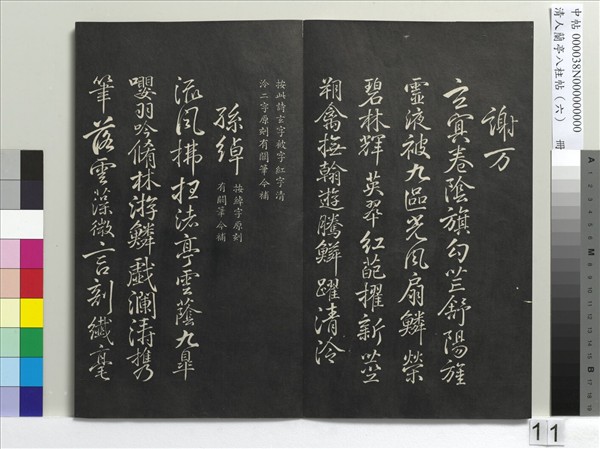 中帖 000038N000000000
清人蘭亭八柱帖（六） 冊
謝万
玄冥卷蔭旗勾芒舒陽旌
靈液被九區光風扇鱗榮
碧林輝英翠紅葩擢新莖
翔禽撫翰遊騰鱗躍清泠
按此詩玄字字紅字清
泠二字原刻有闕筆今補
孫綽
按綽字原刻
有闕筆今補
流風拂枉渚亭雲蔭九皐
嚶羽吟脩林游鱗戲瀾濤攜
筆落雲藻微言剖纖毫
11